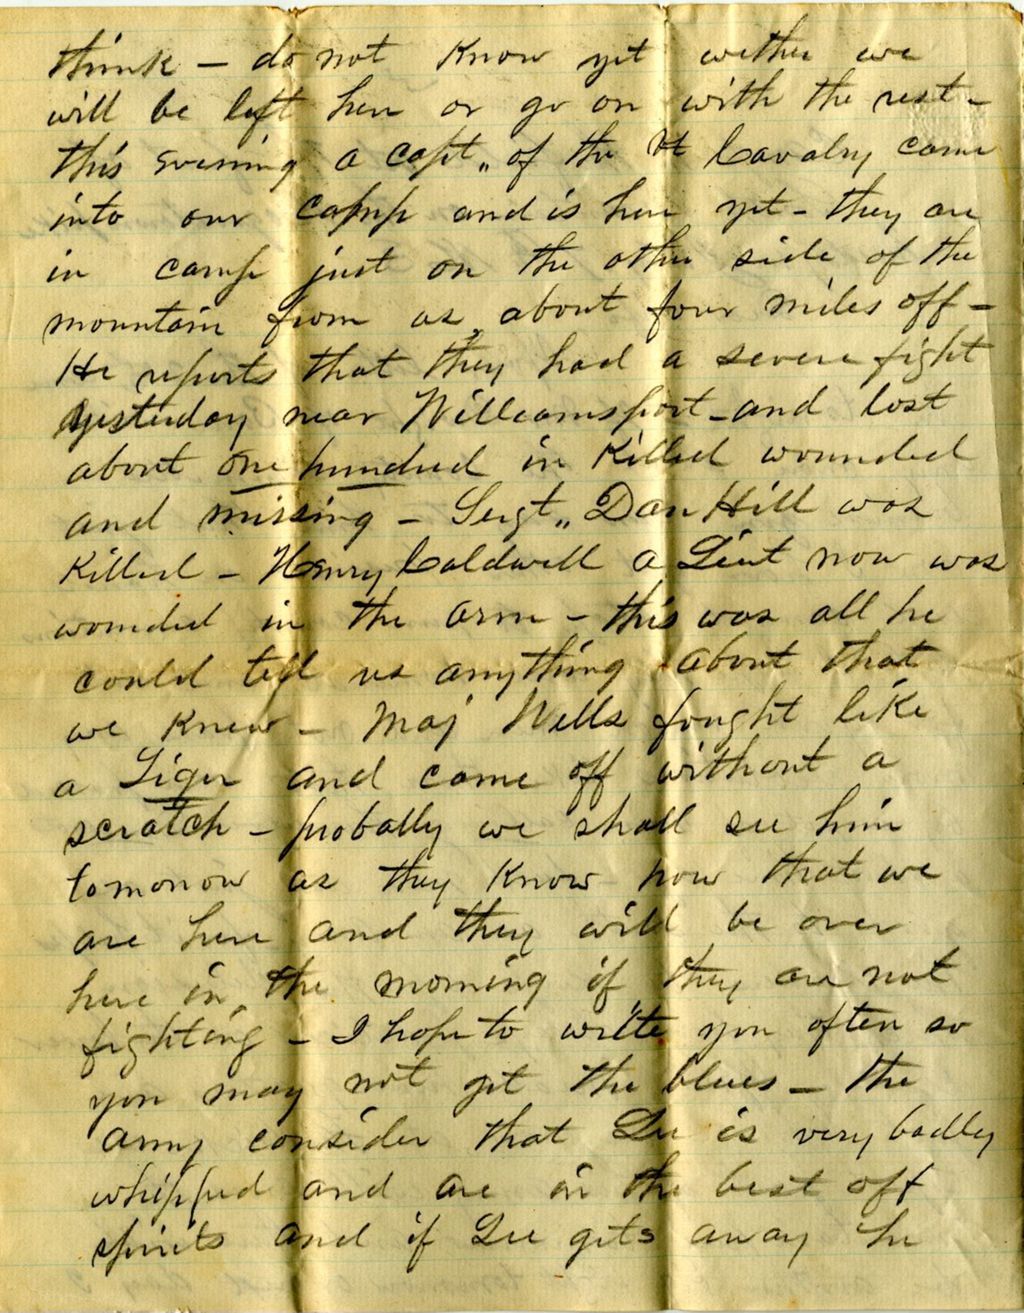 think – do not know yet wether we
will be left here or go on with the rest –
this evening a Capt„ of the Vt Cavalry came
into our camp and is here yet – they are
in camp just on the other side of the
mountain from us, about four miles off –
He reports that they had a severe fight
yesterday near Williamsport – and lost
about one hundred in killed wounded
and missing – Sergt„ Dan Hill was
killed – Henry Caldwell a Lieut now was
wounded in the arm – this was all he
could tell us anything about that
we knew – Maj Wells fought like
a Tiger and came off without a
scratch – probally we shall see him
tomorrow as they know now that we
are here and they will be over
here in the morning if they are not
fighting – I hope to write you often so
you may not get the blues – the
army consider that Lee is very badly
whipped and are in the best off
spirits and if Lee gets away he